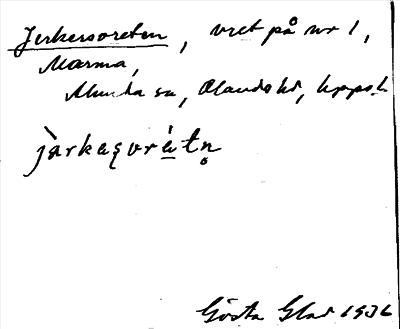 Jerkersvreten, vret på nr 1,
Marma,
Munta sn, Olands hd, Upps. L
jàrkasvrétn
Gösta Glad 1932